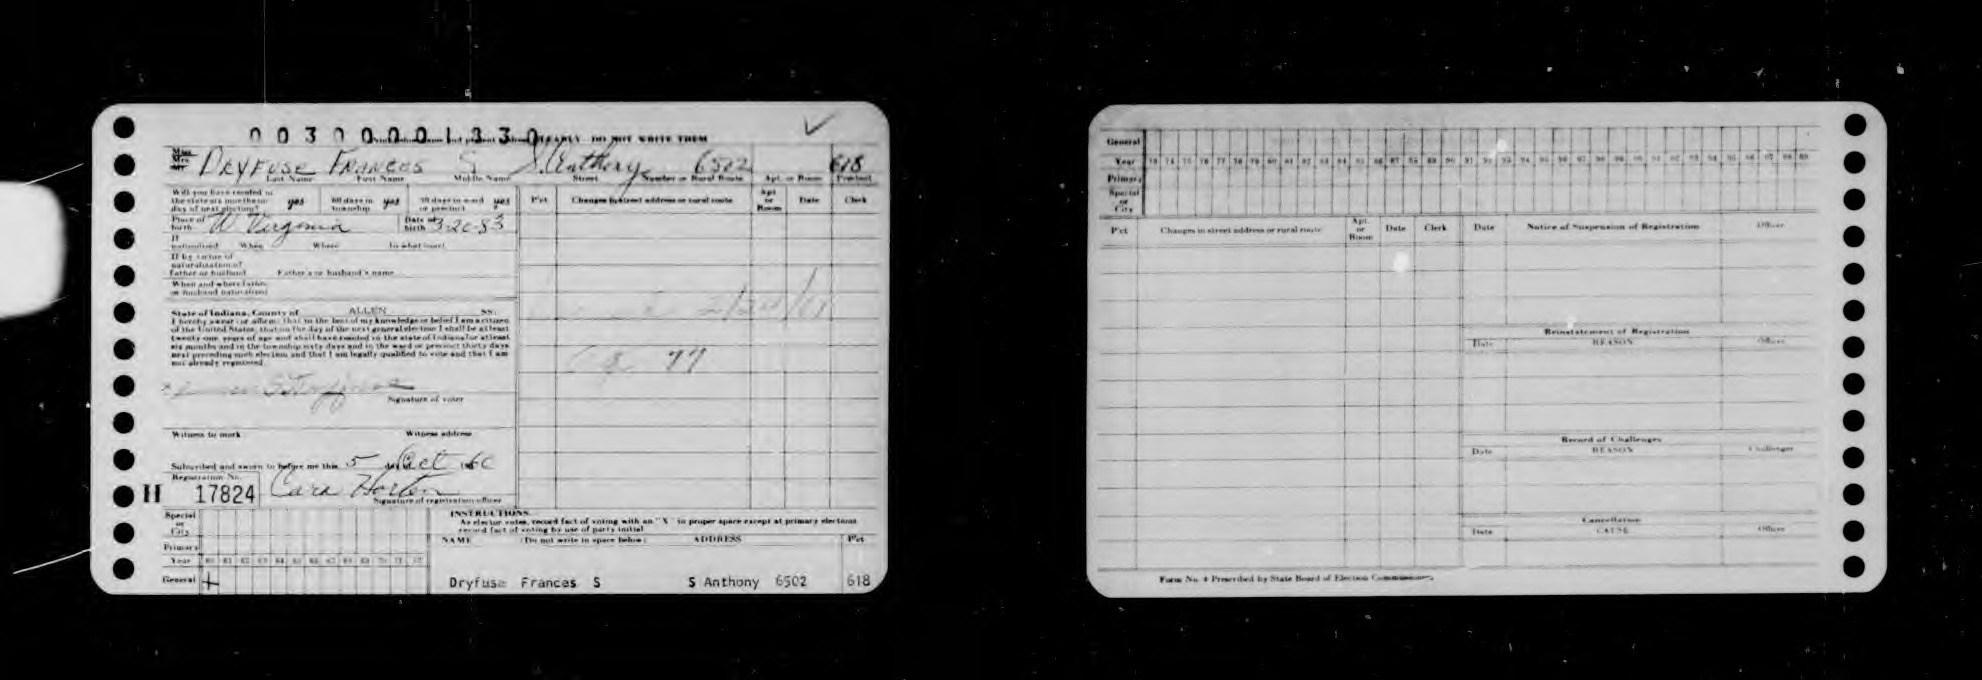 00300001330 CLEARLY DO NOT WRITE THEM
Miss
Mrs.
Mr. DRYFUSE FRANCES S S. Anthony 6502 618
Last Name First Name Middle Name Street Number or Rural Route Apt. or Room Precinct
Will you have resided in the state six months on day of next election? yes 60 days in township yes 30 days in ward or precinct yes
Place of birth W Virginia Date of birth 3-20-83
If naturalized When Where In what court
If by virtue of naturalization of
Father or husband Father's or husband's name
When and where father or husband naturalized
State of Indiana, County of ALLEN ss:
I hereby swear (or affirm) that to the best of my knowledge or belief I am a citizen
of the United States, that on the day of the next general election I shall be at least
twenty-one years of age and shall have resided in the state of Indiana for at least
six months and in the township sixty days and in the ward or precinct thirty days
next preceding such election and that I am legally qualified to vote and that I am
not already registered.
Signature of voter
Witness to mark Witness address
Subscribed and sworn to before me this 5 day of Oct 1960
Registration No.
H 17824 Cara Horton
Signature of registration officer
Special or City
Primary
Year 60 61 62 63 64 65 66 67 68 69 70 71 72
General +
P'ct Changes in street address or rural route Apt. or Room Date Clerk
INSTRUCTIONS
As elector votes, record fact of voting with an "X" in proper space except at primary elections
record fact of voting by use of party initial
NAME (Do not write in space below) ADDRESS P'ct
Dryfuse Frances S S Anthony 6502 618
General
Year 73 74 75 76 77 78 79 80 81 82 83 84 85 86 87 88 89 90 91 92 93 94 95 96 97 98 99
Primary
Special or City
P'ct Changes in street address or rural route Apt. or Room Date Clerk
Date Notice of Suspension of Registration Officer
Reinstatement of Registration
Date REASON Officer
Record of Challenges
Date REASON Challenger
Cancellation
Date CAUSE Officer
Form No. 4 Prescribed by State Board of Election Commissioners